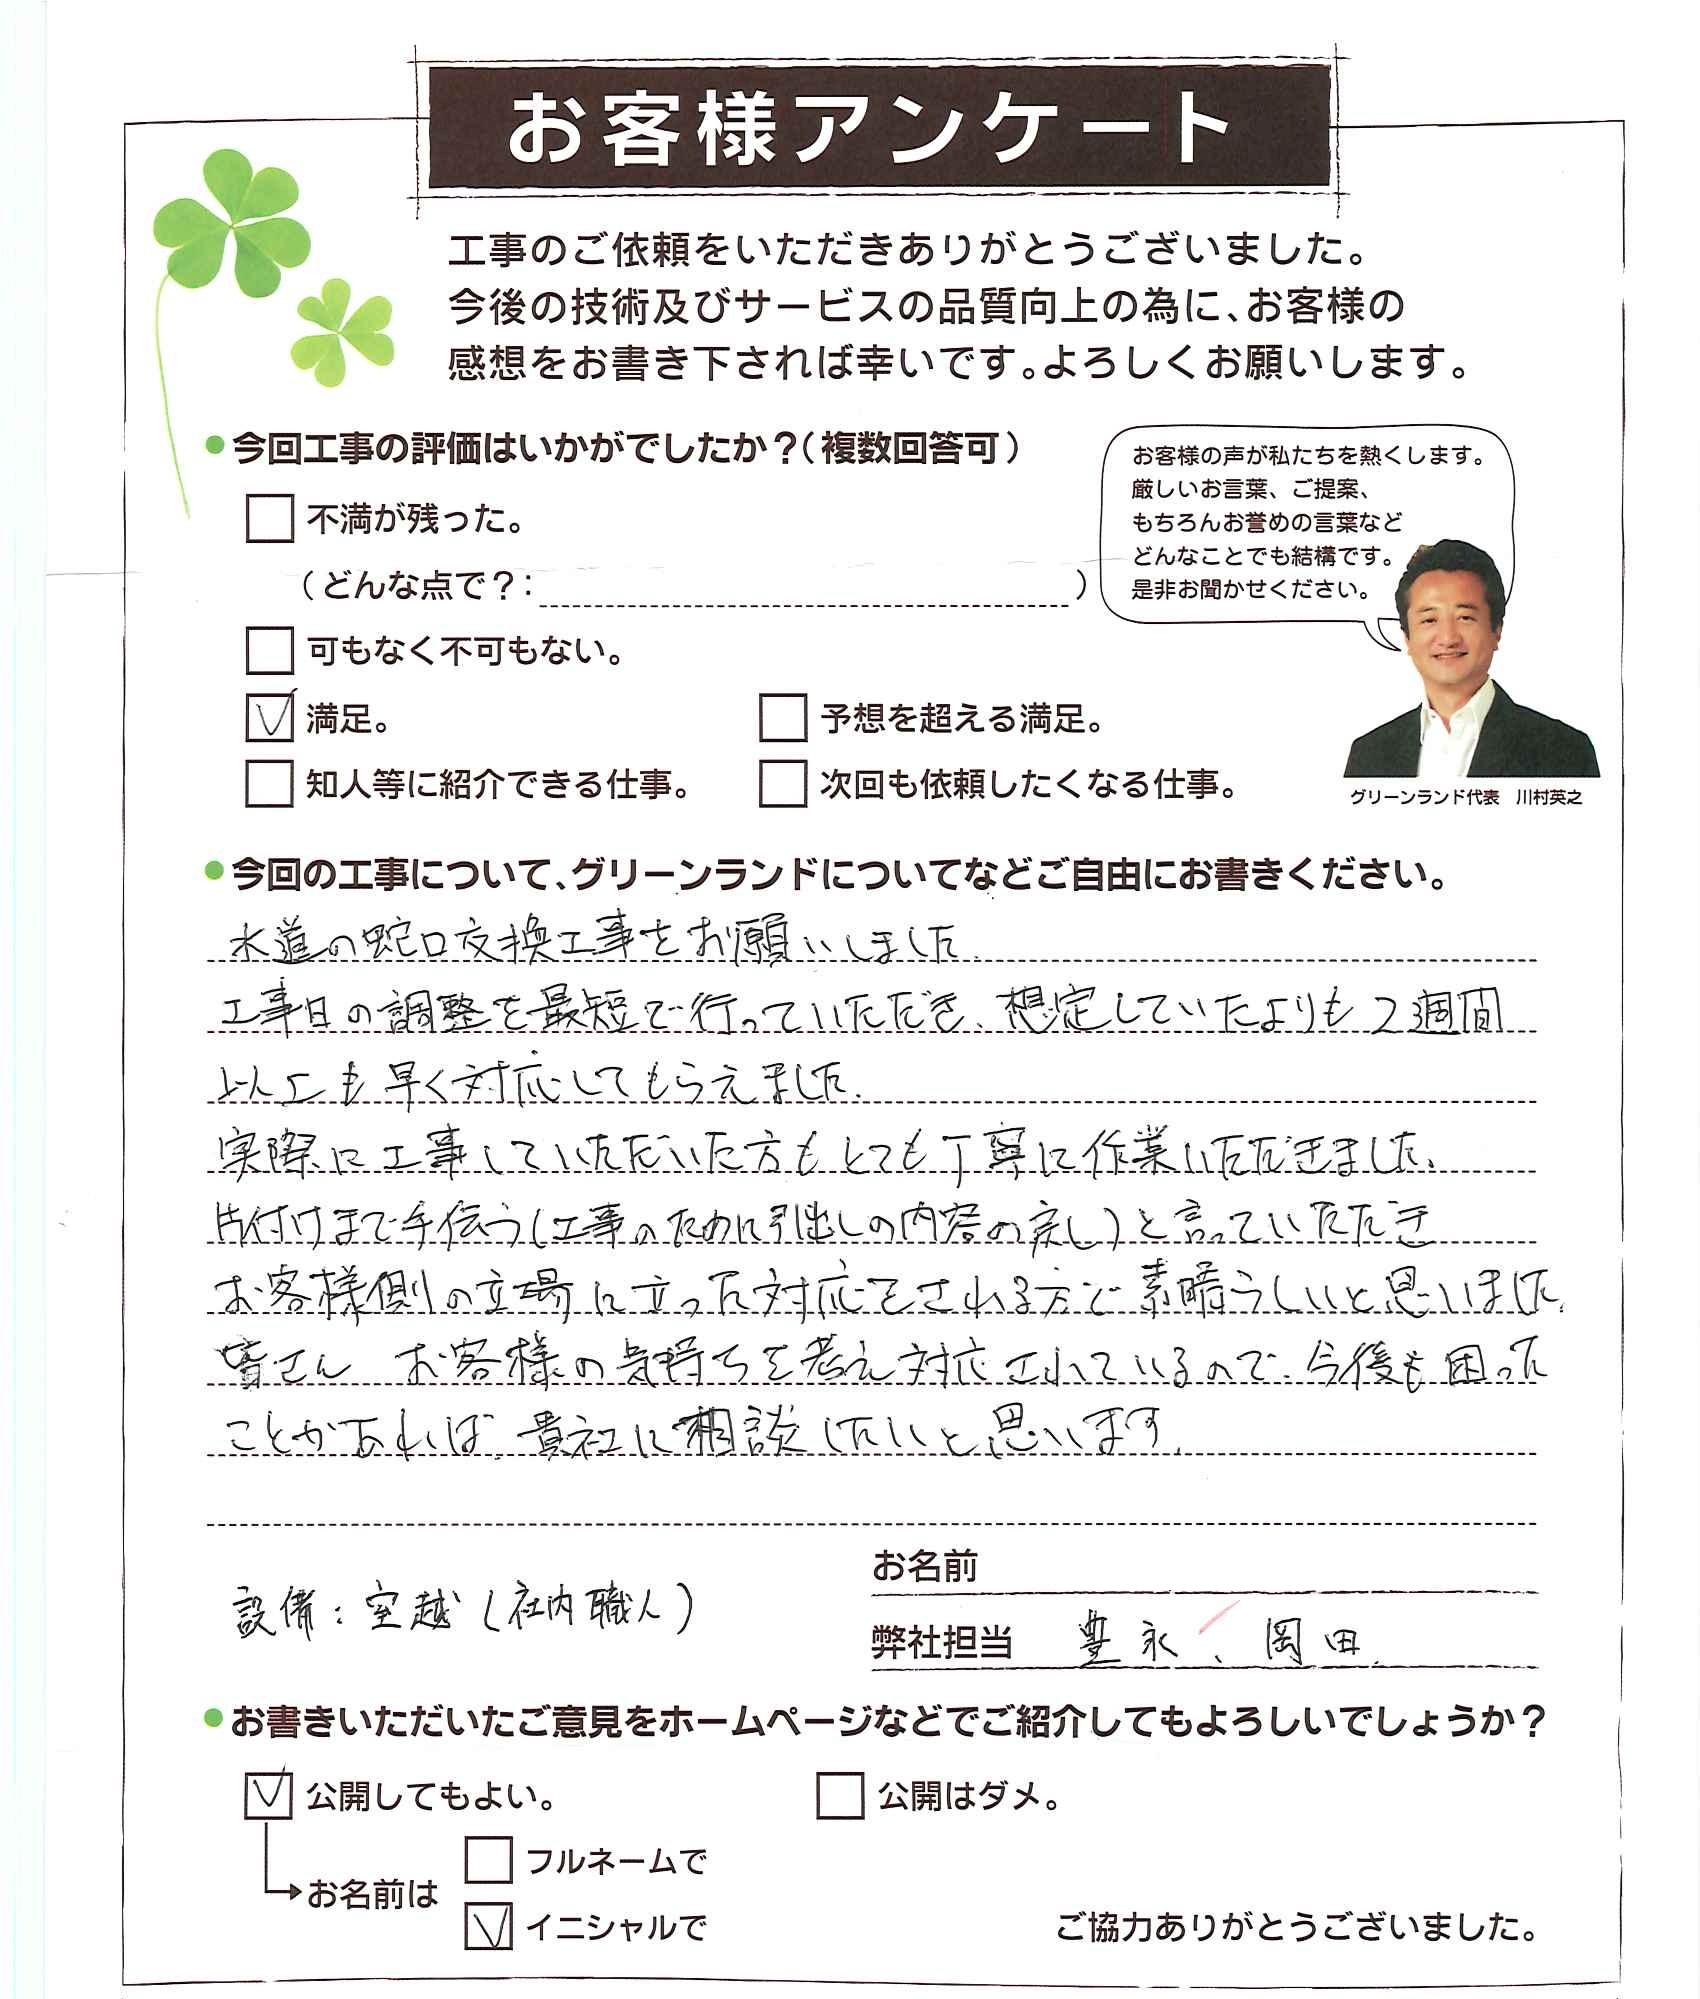 お客様アンケート
工事のご依頼をいただきありがとうございました。
今後の技術及びサービスの品質向上の為に、お客様の
感想をお書き下されば幸いです。よろしくお願いします。
●今回工事の評価はいかがでしたか?(複数回答可)
不満が残った。
(どんな点で?: )
可もなく不可もない。
満足。
予想を超える満足。
知人等に紹介できる仕事。
次回も依頼したくなる仕事。
お客様の声が私たちを熱くします。
厳しいお言葉、ご提案、
もちろんお誉めの言葉など
どんなことでも結構です。
是非お聞かせください。
グリーンランド代表 川村英之
●今回の工事について、グリーンランドについてなどご自由にお書きください。
水道の蛇口交換工事をお願いしました
工事日の調整を最短で行っていただき、想定していたよりも2週間
以上も早く対応してもらえました.
実際に工事していただいた方もとても丁寧に作業いただきました.
片付けまで手伝う(工事のために引出しの内容の戻し)と言っていただき
お客様側の立場に立った対応をされる方で素晴らしいと思いました.
皆さん お客様の気持ちを考え対応されているので、今後も困った
ことがあれば、貴社に相談したいと思います.
設備:室越(社内職人)
お名前
弊社担当 豊永、岡田
●お書きいただいたご意見をホームページなどでご紹介してもよろしいでしょうか?
公開してもよい。
公開はダメ。
お名前は
フルネームで
イニシャルで
ご協力ありがとうございました。